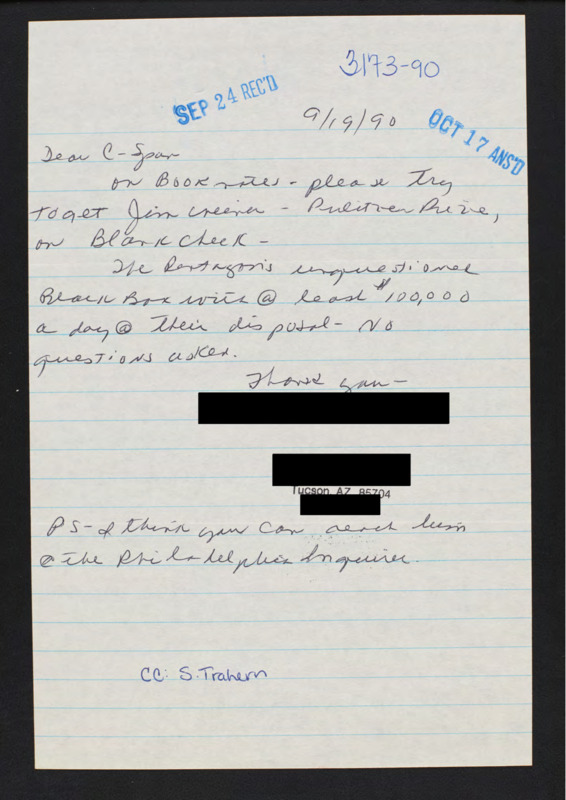 3173-90
SEP 24 REC'D
9/19/90
OCT 17 ANS'D
Dear C-Span
on Booknotes - please try
to get Jim - Pulitzer Prize,
on Blank Check -
The Pentagon's unquestioned
Black Box with @ least $100,000
a day @ their disposal - No
questions asked.
Thank you -
Tucson AZ 85704
PS - I think you can reach him
@ the Philadelphia Inquirer.
CC: S. Trahern